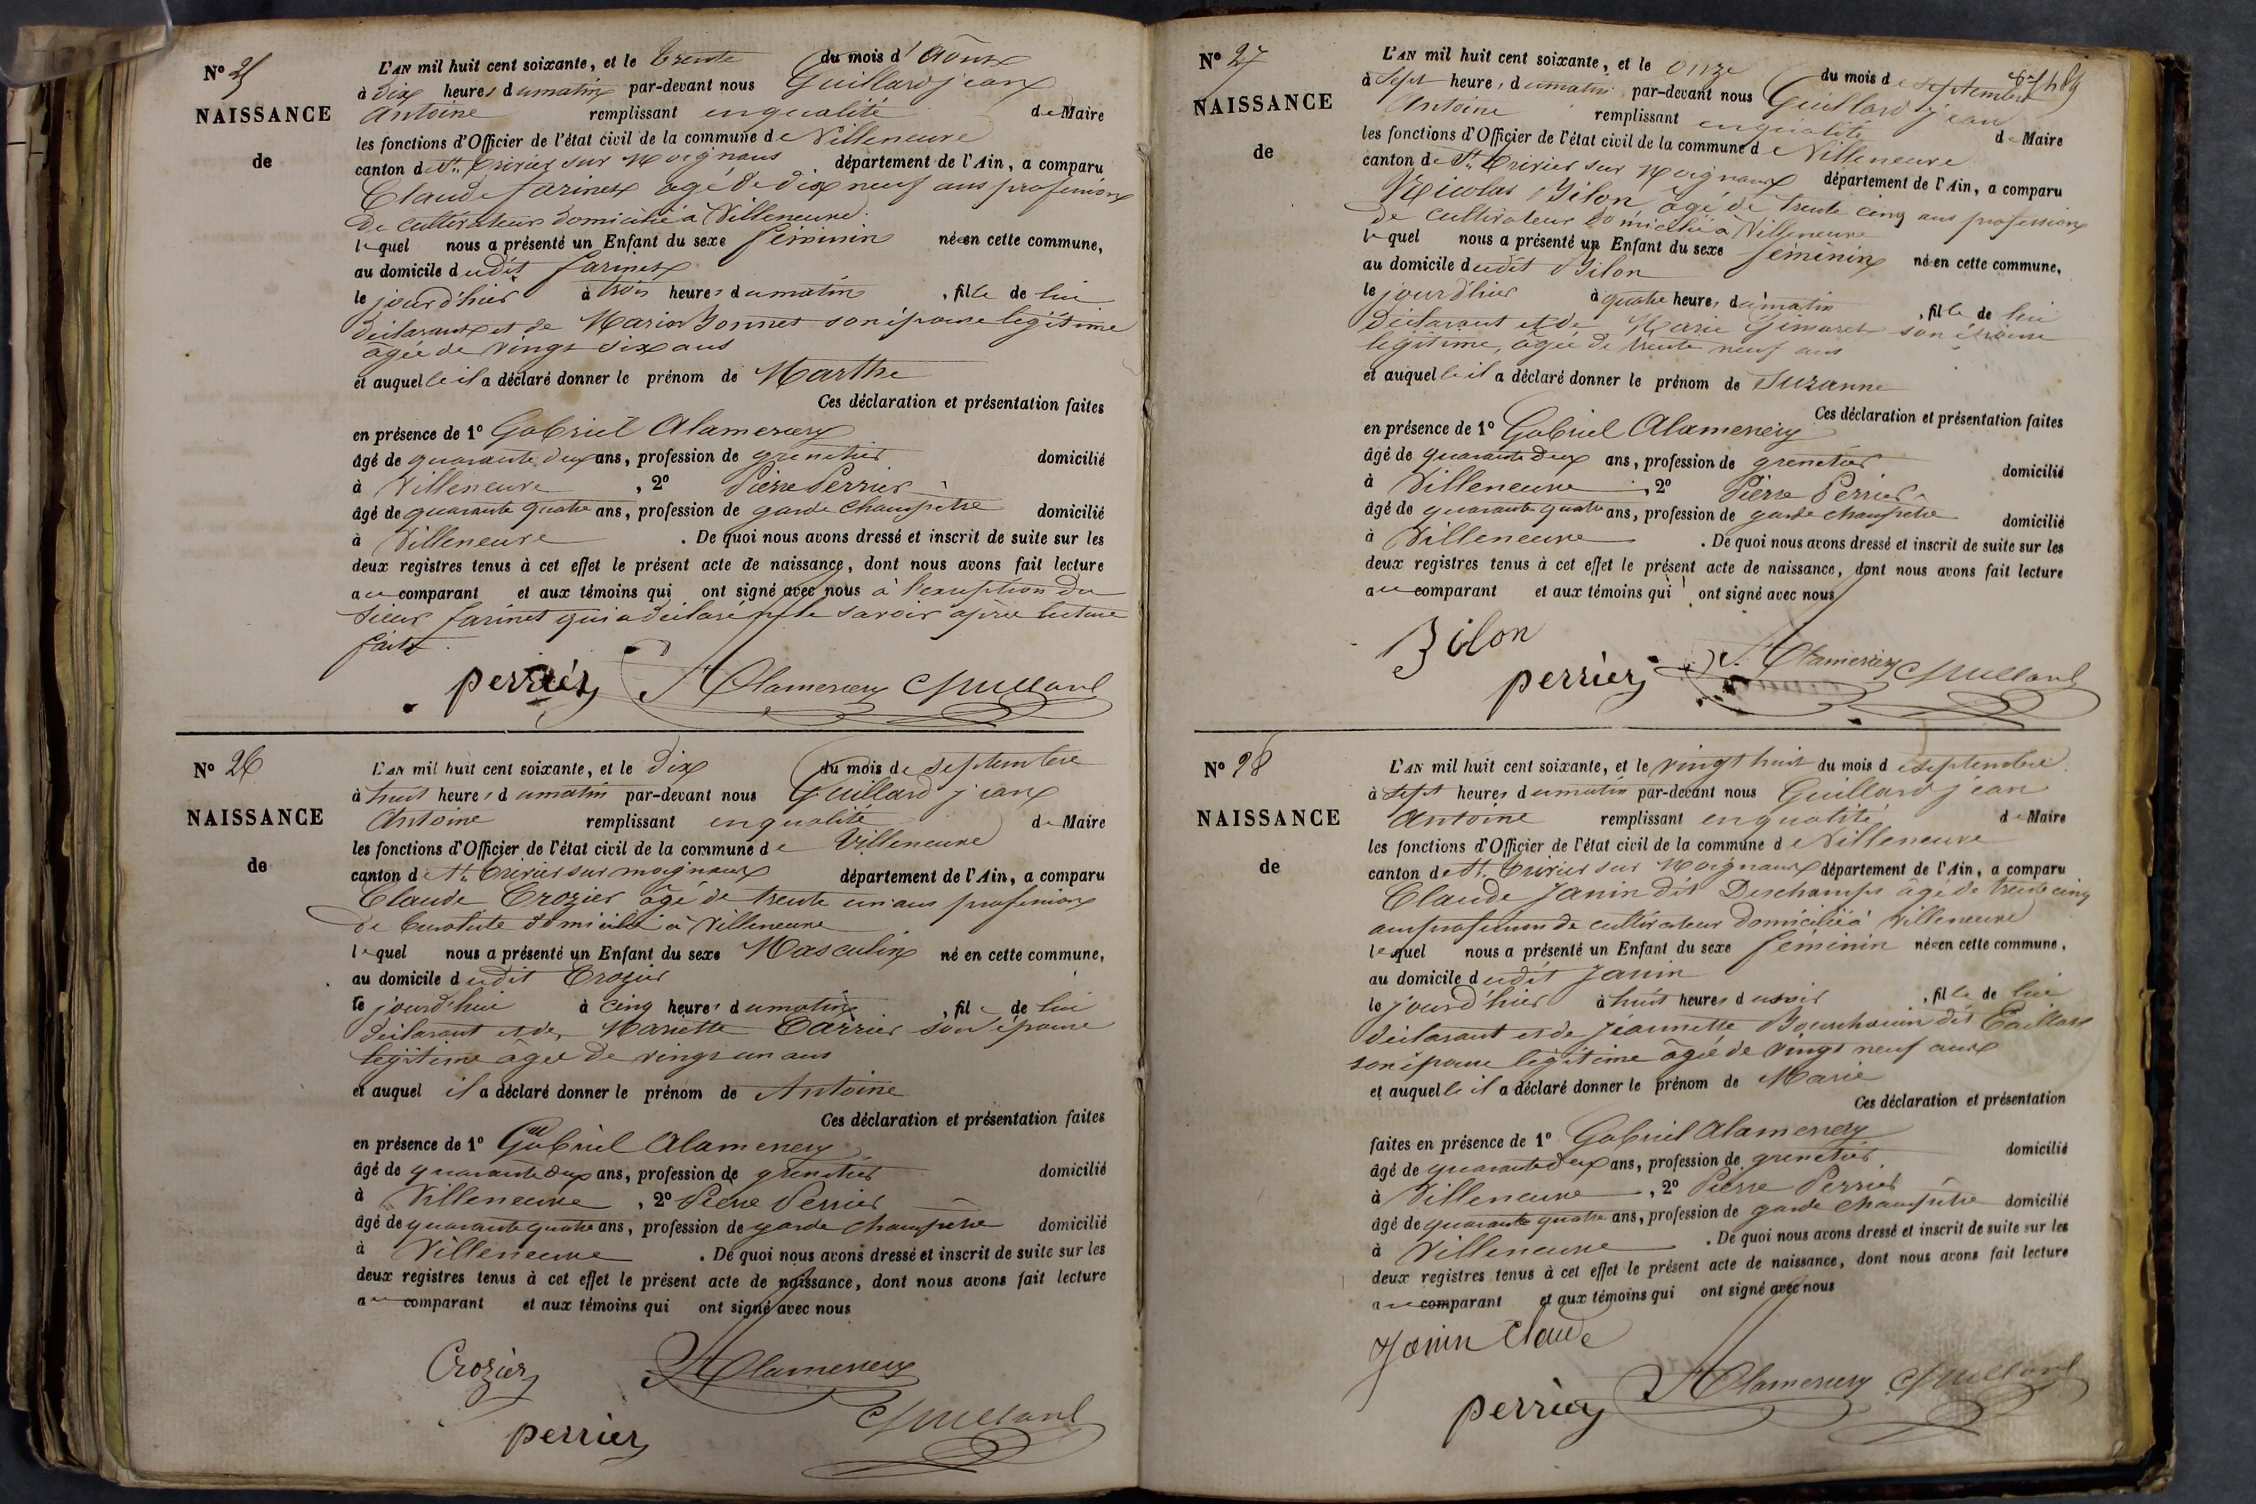 N° 25
NAISSANCE
de
L'AN mil huit cent soixante, et le trente du mois d'Août
à dix heures du matin par-devant nous Guillard jean
Antoine remplissant en qualité de Maire
les fonctions d'Officier de l'état civil de la commune de Villeneuve
canton de St. Trivier sur Moignans département de l'Ain, a comparu
Claude farinet agé de dix neuf ans profession
de cultivateur domicilié à Villeneuve
lequel nous a présenté un Enfant du sexe féminin né en cette commune,
au domicile dudit farinet
le jour d'hier à trois heures du matin, fille de lui
déclarant et de Marie Bonnet son épouse legitime
âgée de vingt six ans
et auquelle il a déclaré donner le prénom de Marthe
Ces déclaration et présentation faites
en présence de 1° Gabriel Alamercery
âgé de quarante deux ans, profession de grenetier domicilié
à Villeneuve, 2° Pierre Perrier
âgé de quarante quatre ans, profession de garde champetre domicilié
à Villeneuve. De quoi nous avons dressé et inscrit de suite sur les
deux registres tenus à cet effet le présent acte de naissance, dont nous avons fait lecture
au comparant et aux témoins qui ont signé avec nous à l'exception du
sieur farinet qui a déclaré ne le savoir après lecture
faite.
perrier Alamercery Guillard
N° 26
NAISSANCE
de
L'AN mil huit cent soixante, et le dix du mois de septembre
à huit heures du matin par-devant nous Guillard jean
Antoine remplissant en qualité de Maire
les fonctions d'Officier de l'état civil de la commune de Villeneuve
canton de St. Trivier sur moignans département de l'Ain, a comparu
Claude Crozier âgé de trente un ans profession
de domicilié à Villeneuve
lequel nous a présenté un Enfant du sexe Masculin né en cette commune,
au domicile dudit Crozier
le jourd'hui à cinq heures du matin, fils de lui
déclarant et de Mariette Carrier son épouse
legitime âgée de vingt un ans
et auquel il a déclaré donner le prénom de Antoine
Ces déclaration et présentation faites
en présence de 1° Gabriel Alamercery
âgé de quarante deux ans, profession de grenetier domicilié
à Villeneuve, 2° Pierre Perrier
âgé de quarante quatre ans, profession de garde champetre domicilié
à Villeneuve. De quoi nous avons dressé et inscrit de suite sur les
deux registres tenus à cet effet le présent acte de naissance, dont nous avons fait lecture
au comparant et aux témoins qui ont signé avec nous
Crozier Alamercery
perrier Guillard
N° 27
NAISSANCE
de
L'AN mil huit cent soixante, et le onze du mois de septembre
à sept heures du matin, par-devant nous Guillard jean
Antoine remplissant en qualité de Maire
les fonctions d'Officier de l'état civil de la commune de Villeneuve
canton de St. Trivier sur Moignans département de l'Ain, a comparu
Nicolas Bilon âgé de trente cinq ans profession
de cultivateur domicilié à Villeneuve
lequel nous a présenté un Enfant du sexe féminin né en cette commune,
au domicile dudit Bilon
le jour d'hier à quatre heures du matin, fille de lui
déclarant et de Marie Gimaret son épouse
legitime, âgée de trente neuf ans
et auquelle il a déclaré donner le prénom de Suzanne
Ces déclaration et présentation faites
en présence de 1° Gabriel Alamercery
âgé de quarante deux ans, profession de grenetier domicilié
à Villeneuve, 2° Pierre Perrier
âgé de quarante quatre ans, profession de garde champetre domicilié
à Villeneuve. De quoi nous avons dressé et inscrit de suite sur les
deux registres tenus à cet effet le présent acte de naissance, dont nous avons fait lecture
au comparant et aux témoins qui ont signé avec nous
Bilon
perrier Alamercery Guillard
N° 28
NAISSANCE
de
L'AN mil huit cent soixante, et le vingt huit du mois de septembre
à sept heures du matin par-devant nous Guillard jean
Antoine remplissant en qualité de Maire
les fonctions d'Officier de l'état civil de la commune de Villeneuve
canton de St. Trivier sur Moignans département de l'Ain, a comparu
Claude Janin dit Deschamps âgé de trente cinq
ans profession de cultivateur domicilié à Villeneuve
lequel nous a présenté un Enfant du sexe féminin né en cette commune,
au domicile dudit Janin
le jour d'hier à huit heures du soir, fille de lui
déclarant et de Jeannette dit
son épouse legitime âgée de vingt neuf ans
et auquelle il a déclaré donner le prénom de Marie
Ces déclaration et présentation
faites en présence de 1° Gabriel Alamercery domicilié
âgé de quarante deux ans, profession de grenetier
à Villeneuve, 2° Pierre Perrier
âgé de quarante quatre ans, profession de garde champetre domicilié
à Villeneuve. De quoi nous avons dressé et inscrit de suite sur les
deux registres tenus à cet effet le présent acte de naissance, dont nous avons fait lecture
au comparant et aux témoins qui ont signé avec nous
Janin Claude
perrier Alamercery Guillard